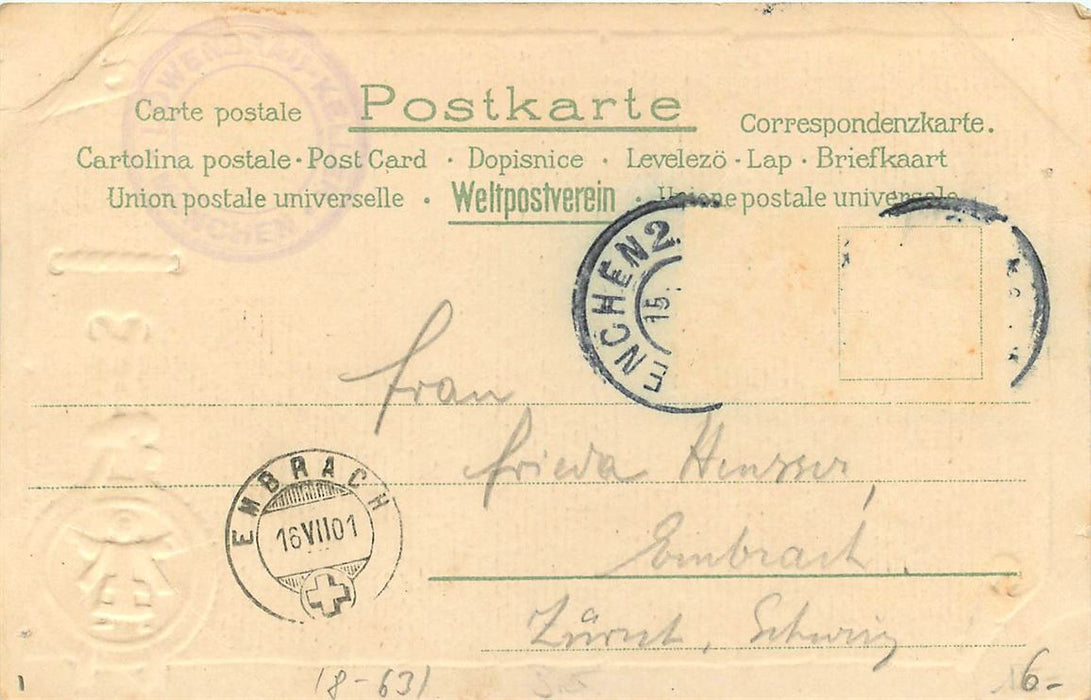 LÖWENBRÄU-KELLER
MÜNCHEN
Postkarte
Carte postale
Correspondenzkarte.
Cartolina postale · Post Card · Dopisnice · Levelezö - Lap · Briefkaart
Union postale universelle · Weltpostverein · Unione postale universale
ENCHEN 2
15.
Frau
Frieda
Embrach.
Zürich, Schweiz
EMBRACH
16 VII 01
18-631
6-